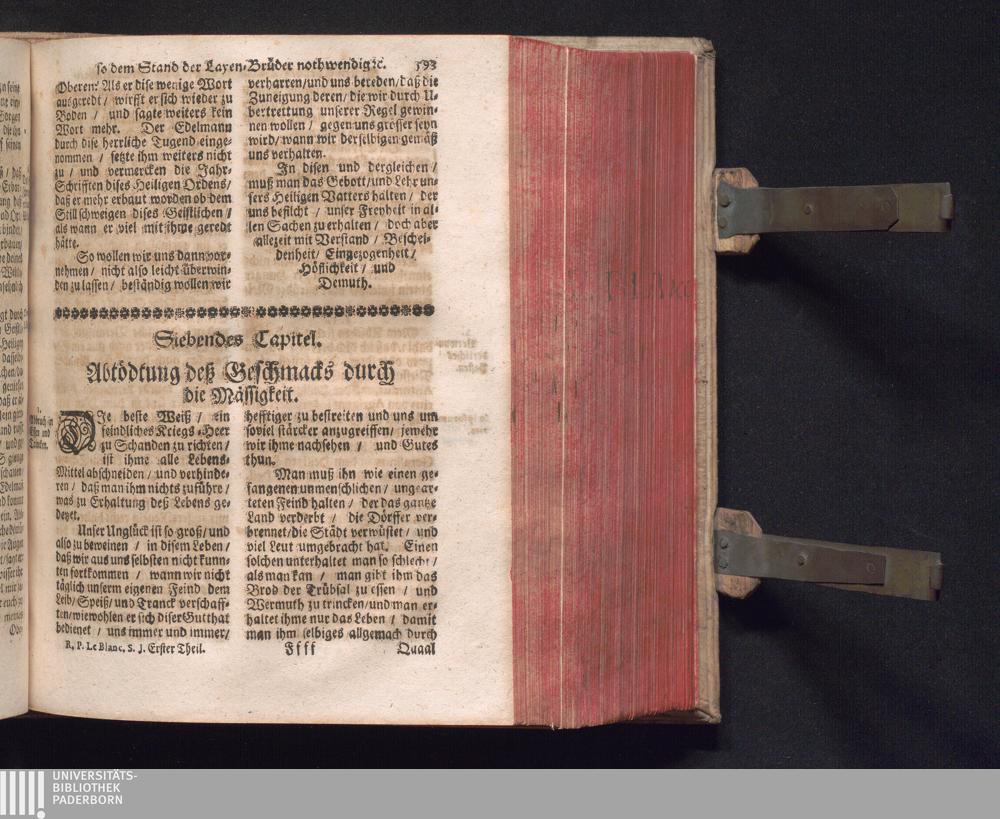 so dem Stand der Layen-Brüder nothwendig ꝛc. 593
Oberen: Als er dise wenige Wort
ausgeredt / wirfft er sich wieder zu
Boden / und sagte weiters kein
Wort mehr. Der Edelmann
durch dise herrliche Tugend einge-
nommen / setzte ihm weiters nicht
zu / und vermercken die Jahr-
Schrifften dises Heiligen Ordens /
daß er mehr erbaut worden ob dem
Stillschweigen dises Geistlichen /
als wann er viel mit ihme geredt
hätte.
So wollen wir uns dann vor-
nehmen / nicht also leicht überwin-
den zu lassen / beständig wollen wir
verharren / und uns bereden / daß die
Zuneigung deren / die wir durch U-
bertrettung unserer Regel gewin-
nen wollen / gegen uns grösser seyn
wird / wann wir derselbigen gemäß
uns verhalten.
In disen und dergleichen /
muß man das Gebott / und Lehr un-
sers Heiligen Vatters halten / der
uns befilcht / unser Freyheit in al-
len Sachen zu erhalten / doch aber
allezeit mit Verstand / Beschei-
denheit / Eingezogenheit /
Höflichkeit / und
Demuth.
Siebendes Capitel.
Abtödtung deß Geschmacks durch
die Mässigkeit.
1.
Abbruch in
Essen und
Trincken.
DIe beste Weiß / ein
feindliches Kriegs-Heer
zu Schanden zu richten /
ist ihme alle Lebens-
Mittel abschneiden / und verhinde-
ren / daß man ihm nichts zuführe /
was zu Erhaltung deß Lebens ge-
deyet.
Unser Unglück ist so groß / und
also zu beweinen / in disem Leben /
daß wir aus uns selbsten nicht kunn-
ten fortkommen / wann wir nicht
täglich unserm eigenen Feind dem
Leib / Speiß / und Tranck verschaff-
ten / wiewohlen er sich diser Gutthat
bedienet / uns immer und immer /
hefftiger zu bestreiten und uns um
soviel stärcker anzugreiffen / jewehr
wir ihme nachsehen / und Gutes
thun.
Man muß ihn wie einen ge-
fangenen unmenschlichen / ungear-
teten Feind halten / der das gantze
Land verderbt / die Dörffer ver-
brennet / die Städt verwüstet / und
viel Leut umgebracht hat. Einen
solchen unterhaltet man so schlecht /
als man kan / man gibt ihm das
Brod der Trübsal zu essen / und
Wermuth zu trincken / und man er-
haltet ihme nur das Leben / damit
man ihm selbiges allgemach durch
R. P. Le Blanc, S. J. Erster Theil.
Ffff
Quaal
UNIVERSITÄTS-
BIBLIOTHEK
PADERBORN